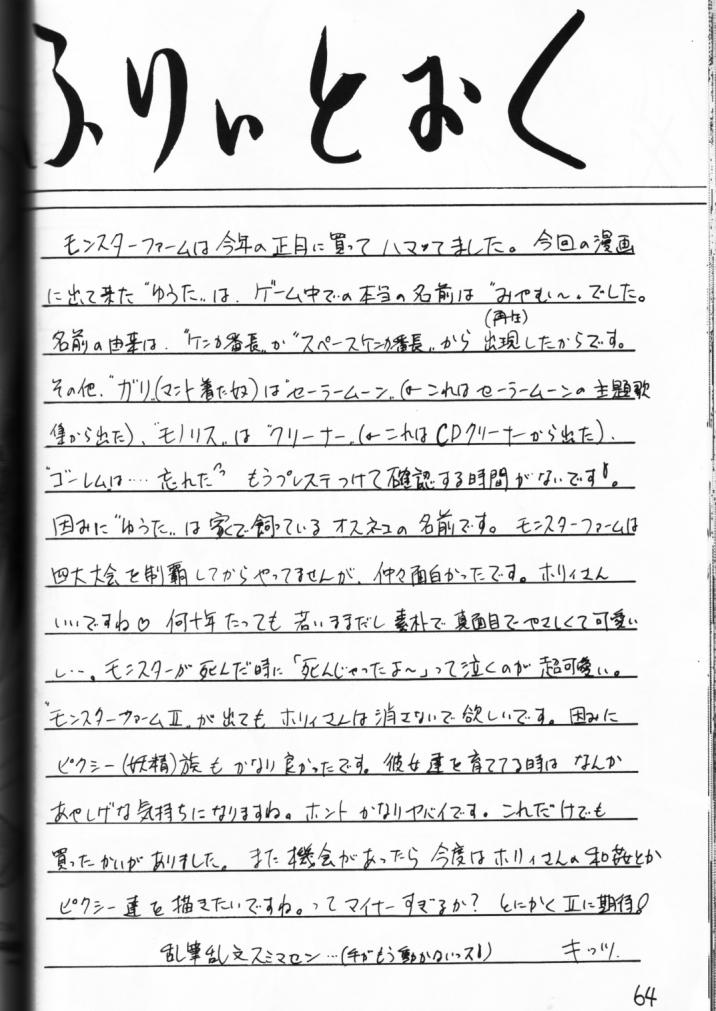 ふりぃとおく
モンスターファームは今年の正月に買ってハマッてました。今回の漫画
に出て来た"ゆうた"は、ゲーム中での本当の名前は"みやむ〜"でした。
名前の由来は、"ケンカ番長"か"スペースケンカ番長"から出現(再生)したからです。
その他、"ガリ"(マント着た奴)は"セーラームーン"(←これはセーラームーンの主題歌
集から出た)、"モノリス"は"クリーナー"(←これはCDクリーナーから出た)、
"ゴーレムは…‥忘れた"もうプレステつけて確認する時間がないです!。
因みに"ゆうた"は家で飼っているオスネコの名前です。モンスターファームは
四大大会を制覇してからやってませんが、仲々面白かったです。ホリィさん
いいですね♡何十年たっても若いままだし素朴で真面目でやさしくて可愛い
し…。モンスターが死んだ時に「死んじゃったよ〜」って泣くのが超可愛い。
"モンスターファームⅡ"が出てもホリィさんは消さないで欲しいです。因みに
ピクシー(妖精)族もかなり良かったです。彼女達を育ててる時はなんか
あやしげな気持ちになりますね。ホントかなりヤバイです。これだけでも
買ったかいがありました。また機会があったら今度はホリィさんの和姦とか
ピクシー達を描きたいですね。ってマイナーすぎるか?とにかくⅡに期待!
乱筆乱文スミマセン…(手がもう動かないっス!) キっツ.
64